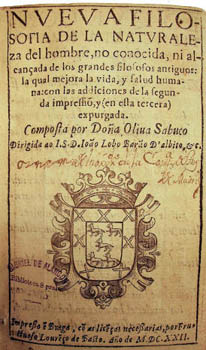 NVEVA FILO-
SOFIA DE LA NATVRALE-
za del hombre, no conocida, ni al-
cançada de los grandes filosofos antiguos:
la qual mejora la vida, y salud huma-
na: con las addiciones de la segun-
da impressiõ, y (en esta tercera)
expurgada.
Composta por Doña Oliua Sabuco
Dirigida ao I.S.D. Ioão Lobo Barão D'albito, &c.
Impresso ẽ Braga, cõ as licẽças necessarias, por Fru-
ctuoso Lourẽço de Basto. Año de M.DC.XXII.